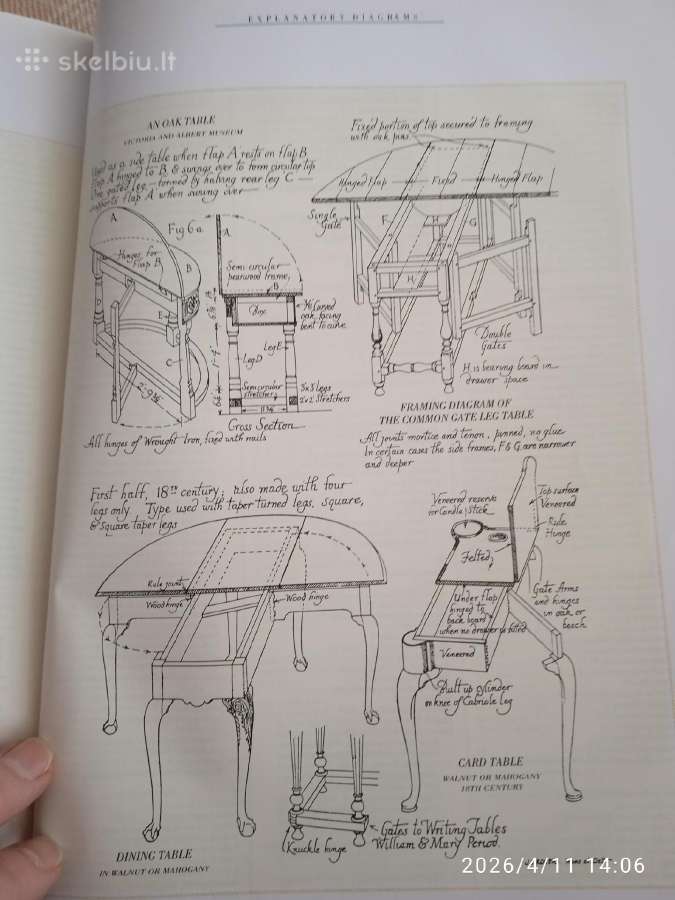 EXPLANATORY DIAGRAMS
skelbiu.lt
AN OAK TABLE
VICTORIA AND ALBERT MUSEUM
Used as a side table when flap A rests on flap B
flap A hinged to B & swings over to form circular top
One gated leg formed by halving rear leg C
supports flap A when swung over
Fig 6a
A
Hinges for
Flap B
B
D
E
C
2'-9¾
A
Semi circular
bearwood frame,
B
Box
oak facing
bent to curve
Leg D
Leg E
1'-4"
Semi circular
stretchers
3x3 legs
2x2 stretchers
Cross Section
All hinges of Wrought Iron, fixed with nails
Fixed portion of top secured to framing
with oak pins
Hinged Flap
Fixed
Hinged Flap
Single
Gate
F
H
G
H
Double
Gates
H is bearing board in
drawer space
FRAMING DIAGRAM OF
THE COMMON GATE LEG TABLE
All joints mortice and tenon, pinned, no glue
In certain cases the side frames, F & G are narrower
and deeper
First half, 18th century; also made with four
legs only. Type used with taper turned legs, square,
& square taper legs
Rule joint
Wood hinge
Wood hinge
DINING TABLE
IN WALNUT OR MAHOGANY
Veneered reserve
for Candle Stick
Top surface
Veneered
Side
Hinge
Felted
Under flap
hinged to
back
when no drawer is fitted
Gate Arms
and hinges
in oak or
beech
Veneered
Built up cylinder
on knee of Cabriole leg
CARD TABLE
WALNUT OR MAHOGANY
18TH CENTURY
Knuckle hinge
Gates to Writing Tables
William & Mary Period.
2026/4/11 14:06